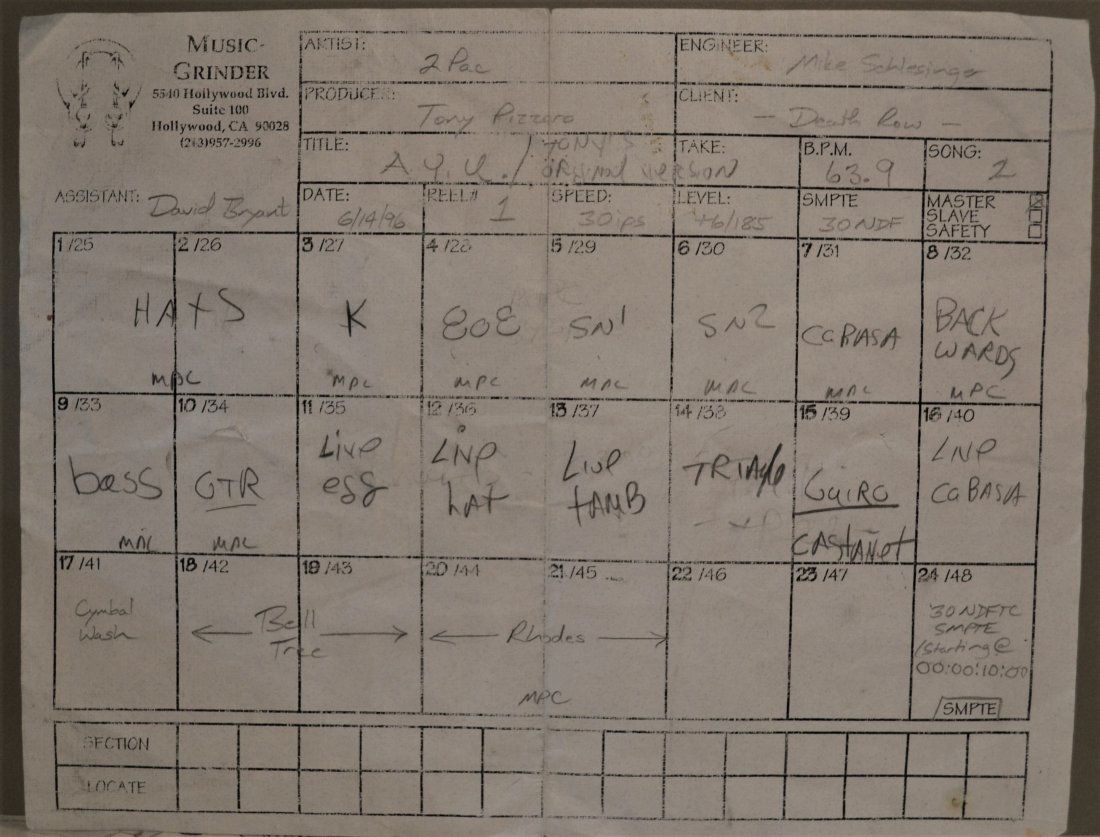 MUSIC-
GRINDER
5540 Hollywood Blvd.
Suite 100
Hollywood, CA 90028
(213)957-2996
ARTIST: 2 Pac
ENGINEER: Mike Schlesinger
PRODUCER: Tony Pizzaro
CLIENT: - Death Row -
TITLE: A.Y.U. / TONY'S ORIGINAL VERSION
TAKE:
B.P.M. 63.9
SONG: 2
ASSISTANT: David Bryant
DATE: 6/14/96
REEL# 1
SPEED: 30 ips
LEVEL: +6/185
SMPTE 30 NDF
MASTER
SLAVE
SAFETY
1 /25 2 /26 3 /27 4 /28 5 /29 6 /30 7 /31 8 /32
HATS K 808 SN1 SN2 CABASA BACK WARDS
MPC MPC MPC MPC MPC MPC MPC
9 /33 10 /34 11 /35 12 /36 13 /37 14 /38 15 /39 16 /40
bass GTR Live egg Live hat Live tAMB TRIAngle Guiro CAStANet Live CABASA
MPC MPC
17 /41 18 /42 19 /43 20 /44 21 /45 22 /46 23 /47 24 /48
Cymbal Wash
Bell Tree
Rhodes
MPC
30 NDFTC
SMPTE
(Starting @
00:00:10:00
SMPTE
SECTION
LOCATE